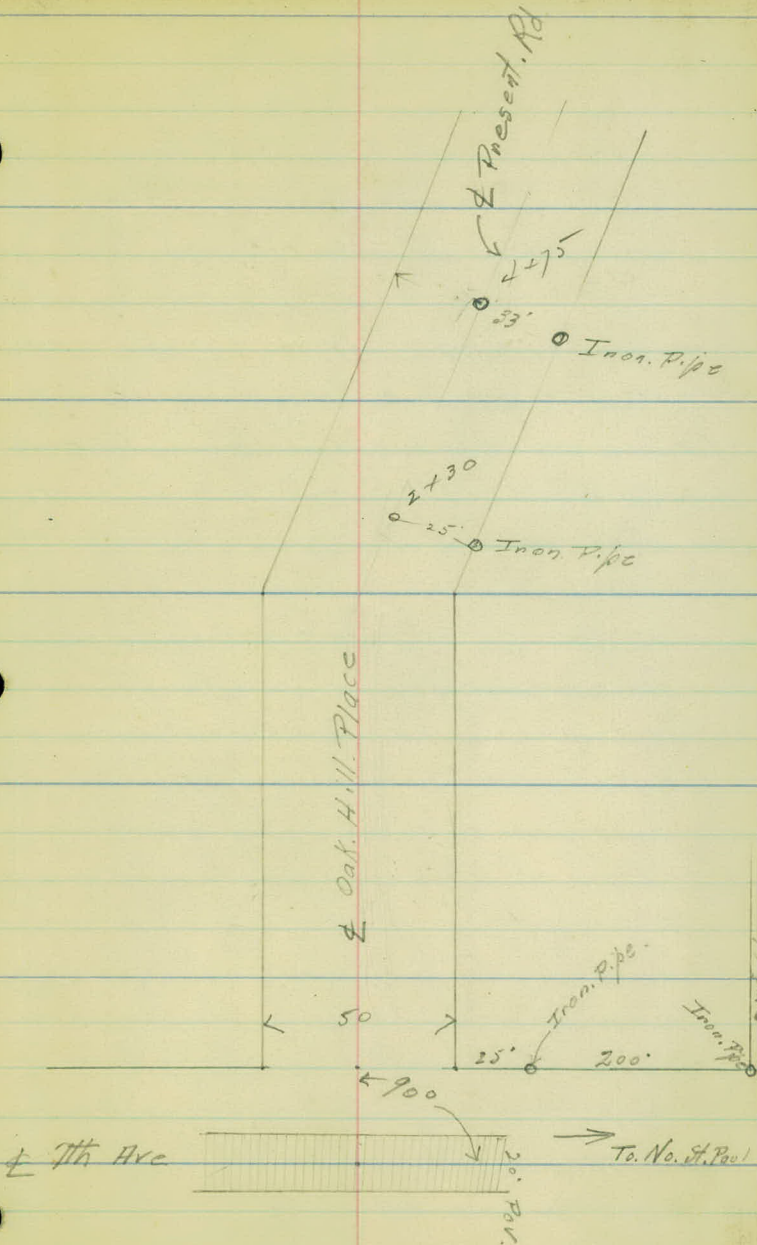 ℄ Present. Rd
4+75
33'
Iron. Pipe
2+30
25'
Iron. Pipe
℄ Oak. Hill. Place
50
Iron. Pipe.
25'
200'
Iron. Pipe
℄ 7th Ave
To. No. St. Paul
20' Pav.